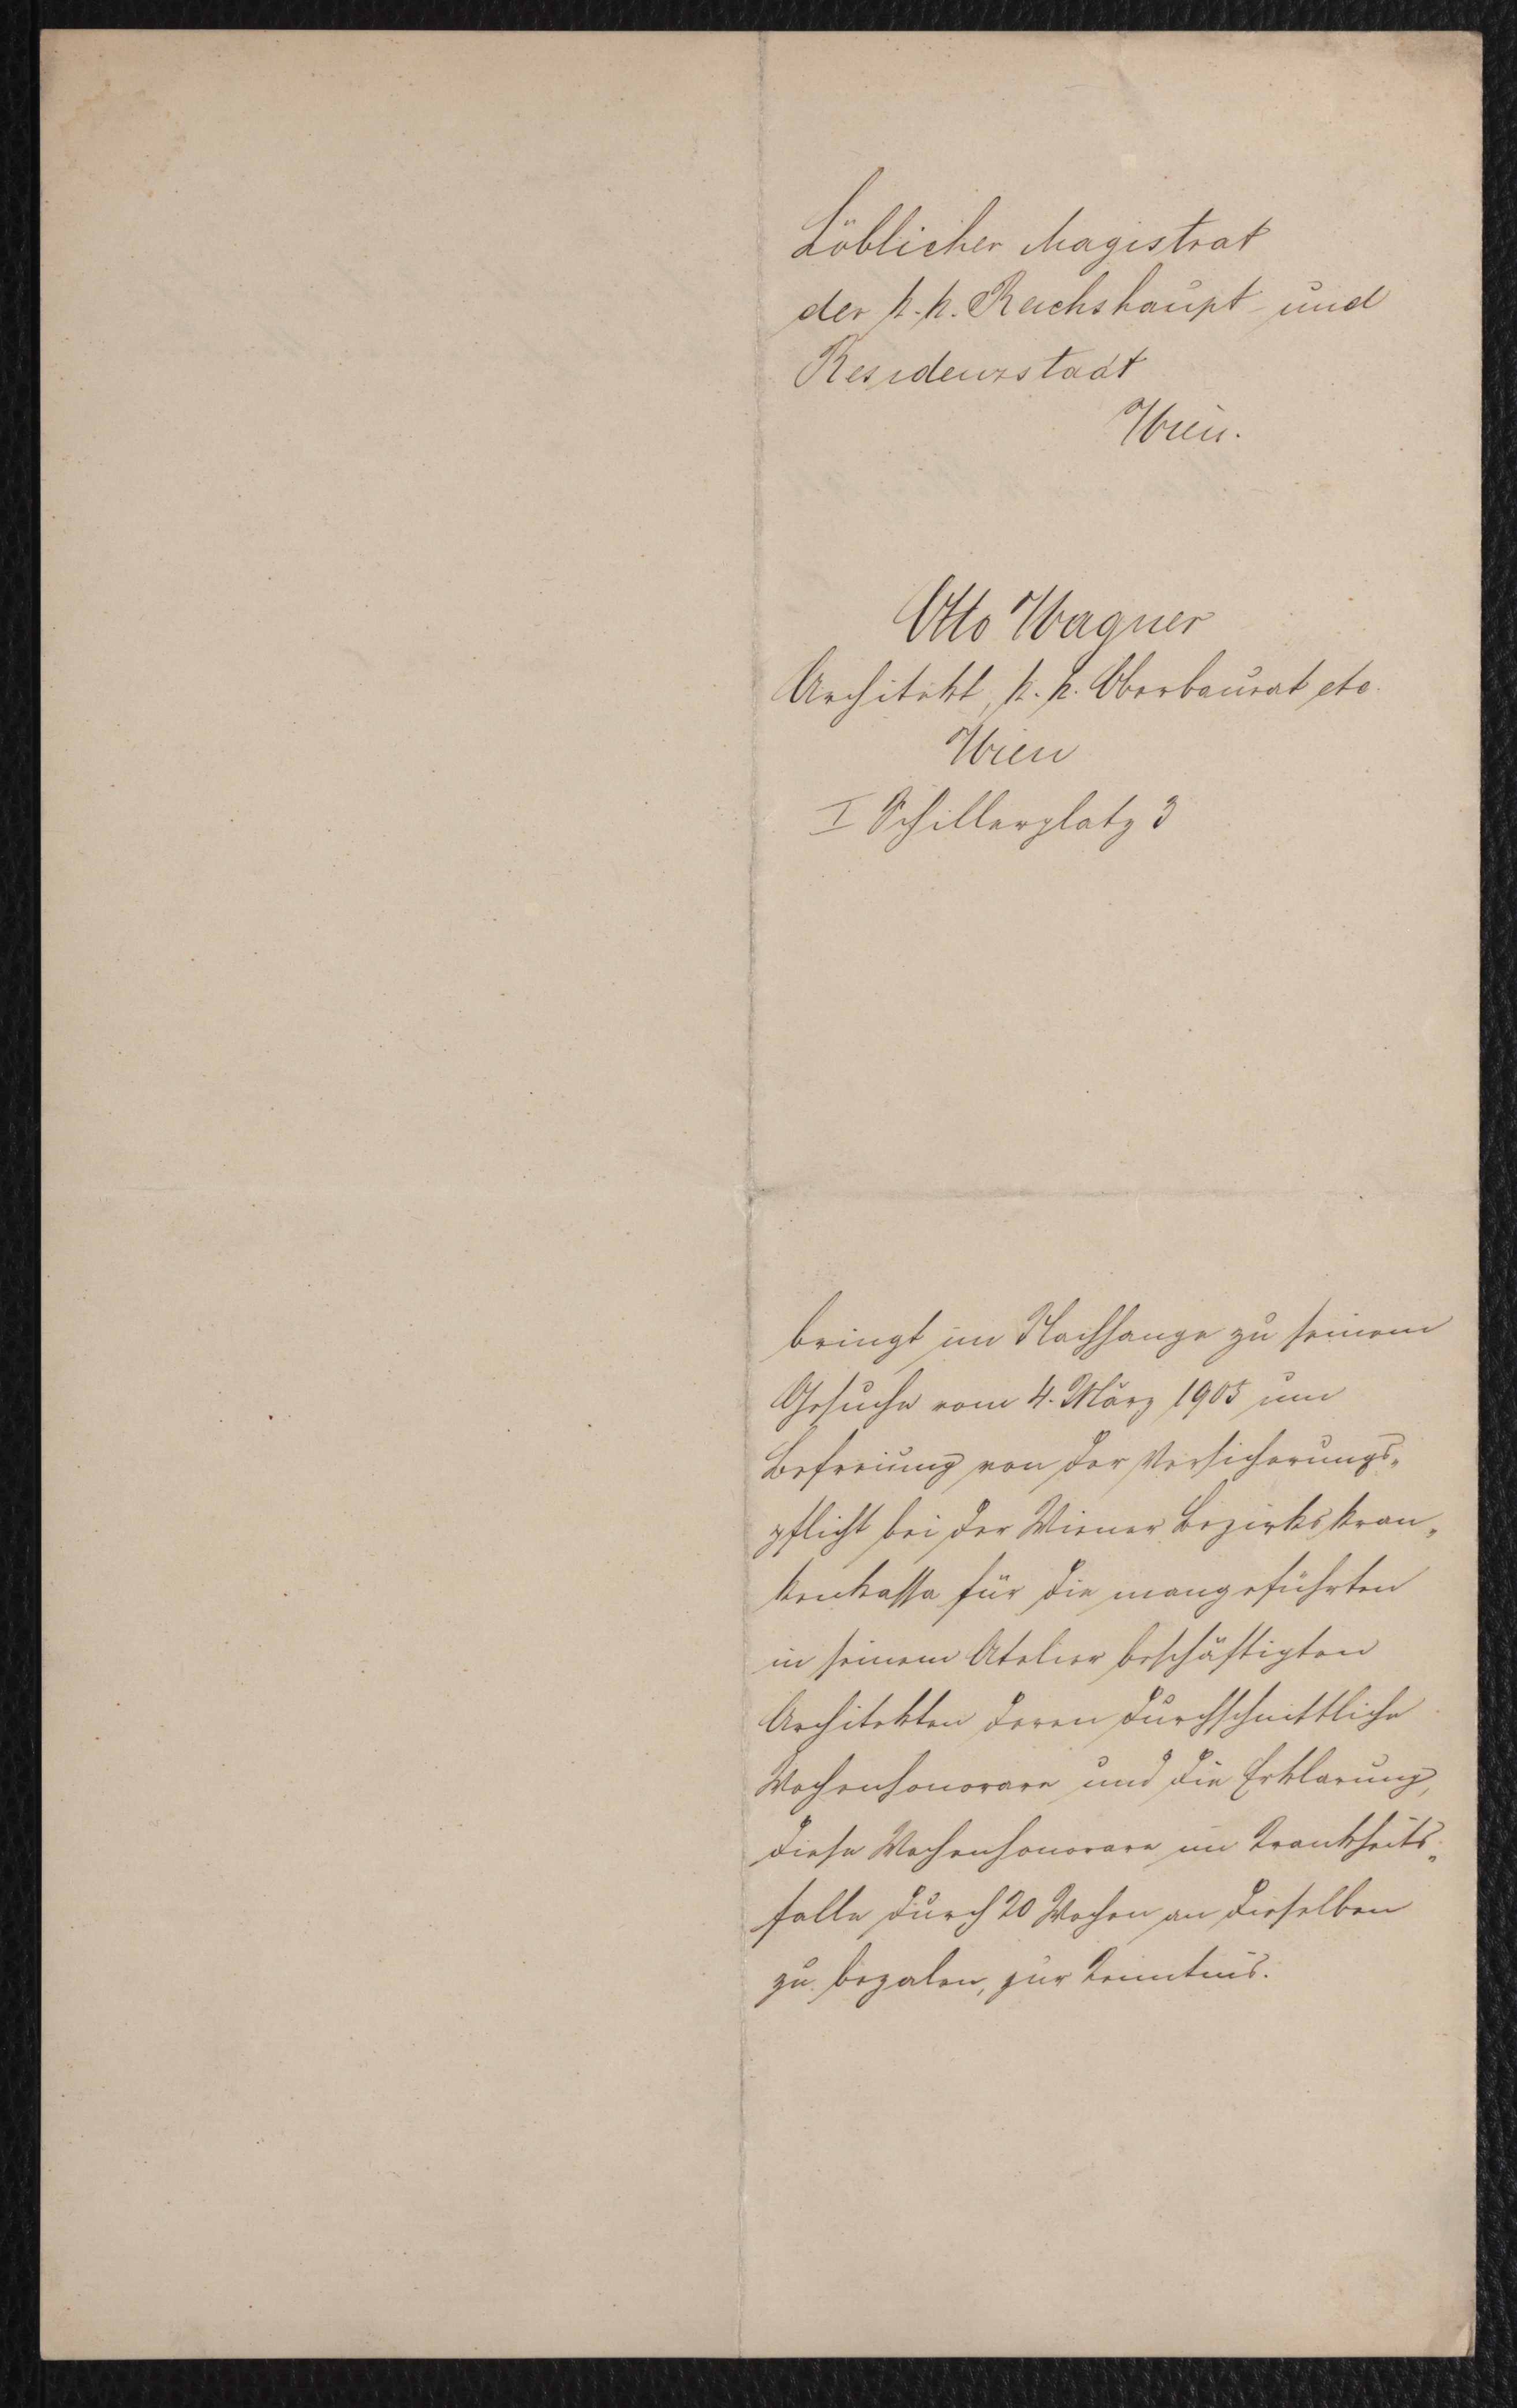 Löblicher Magistrat
der k. k. Reichshaupt- und
Residenzstadt
Wien.
Otto Wagner
Architekt, k. k. Oberbaurat etc.
Wien
I Schillerplatz 3
bringt im Nachhange zu seinem
Gesuche vom 4. März 1905 um
Befreiung von der Versicherungs„
pflicht bei der Wiener Bezirkskran„
kenkassa für die
in seinem Atelier beschäftigten
Architekten deren durchschnittliche
Wochenhonorare und die Erklärung,
diese Wochenhonorare im Krankheits„
falle durch 20 Wochen an dieselben
zu bezalen, zur Kenntnis.